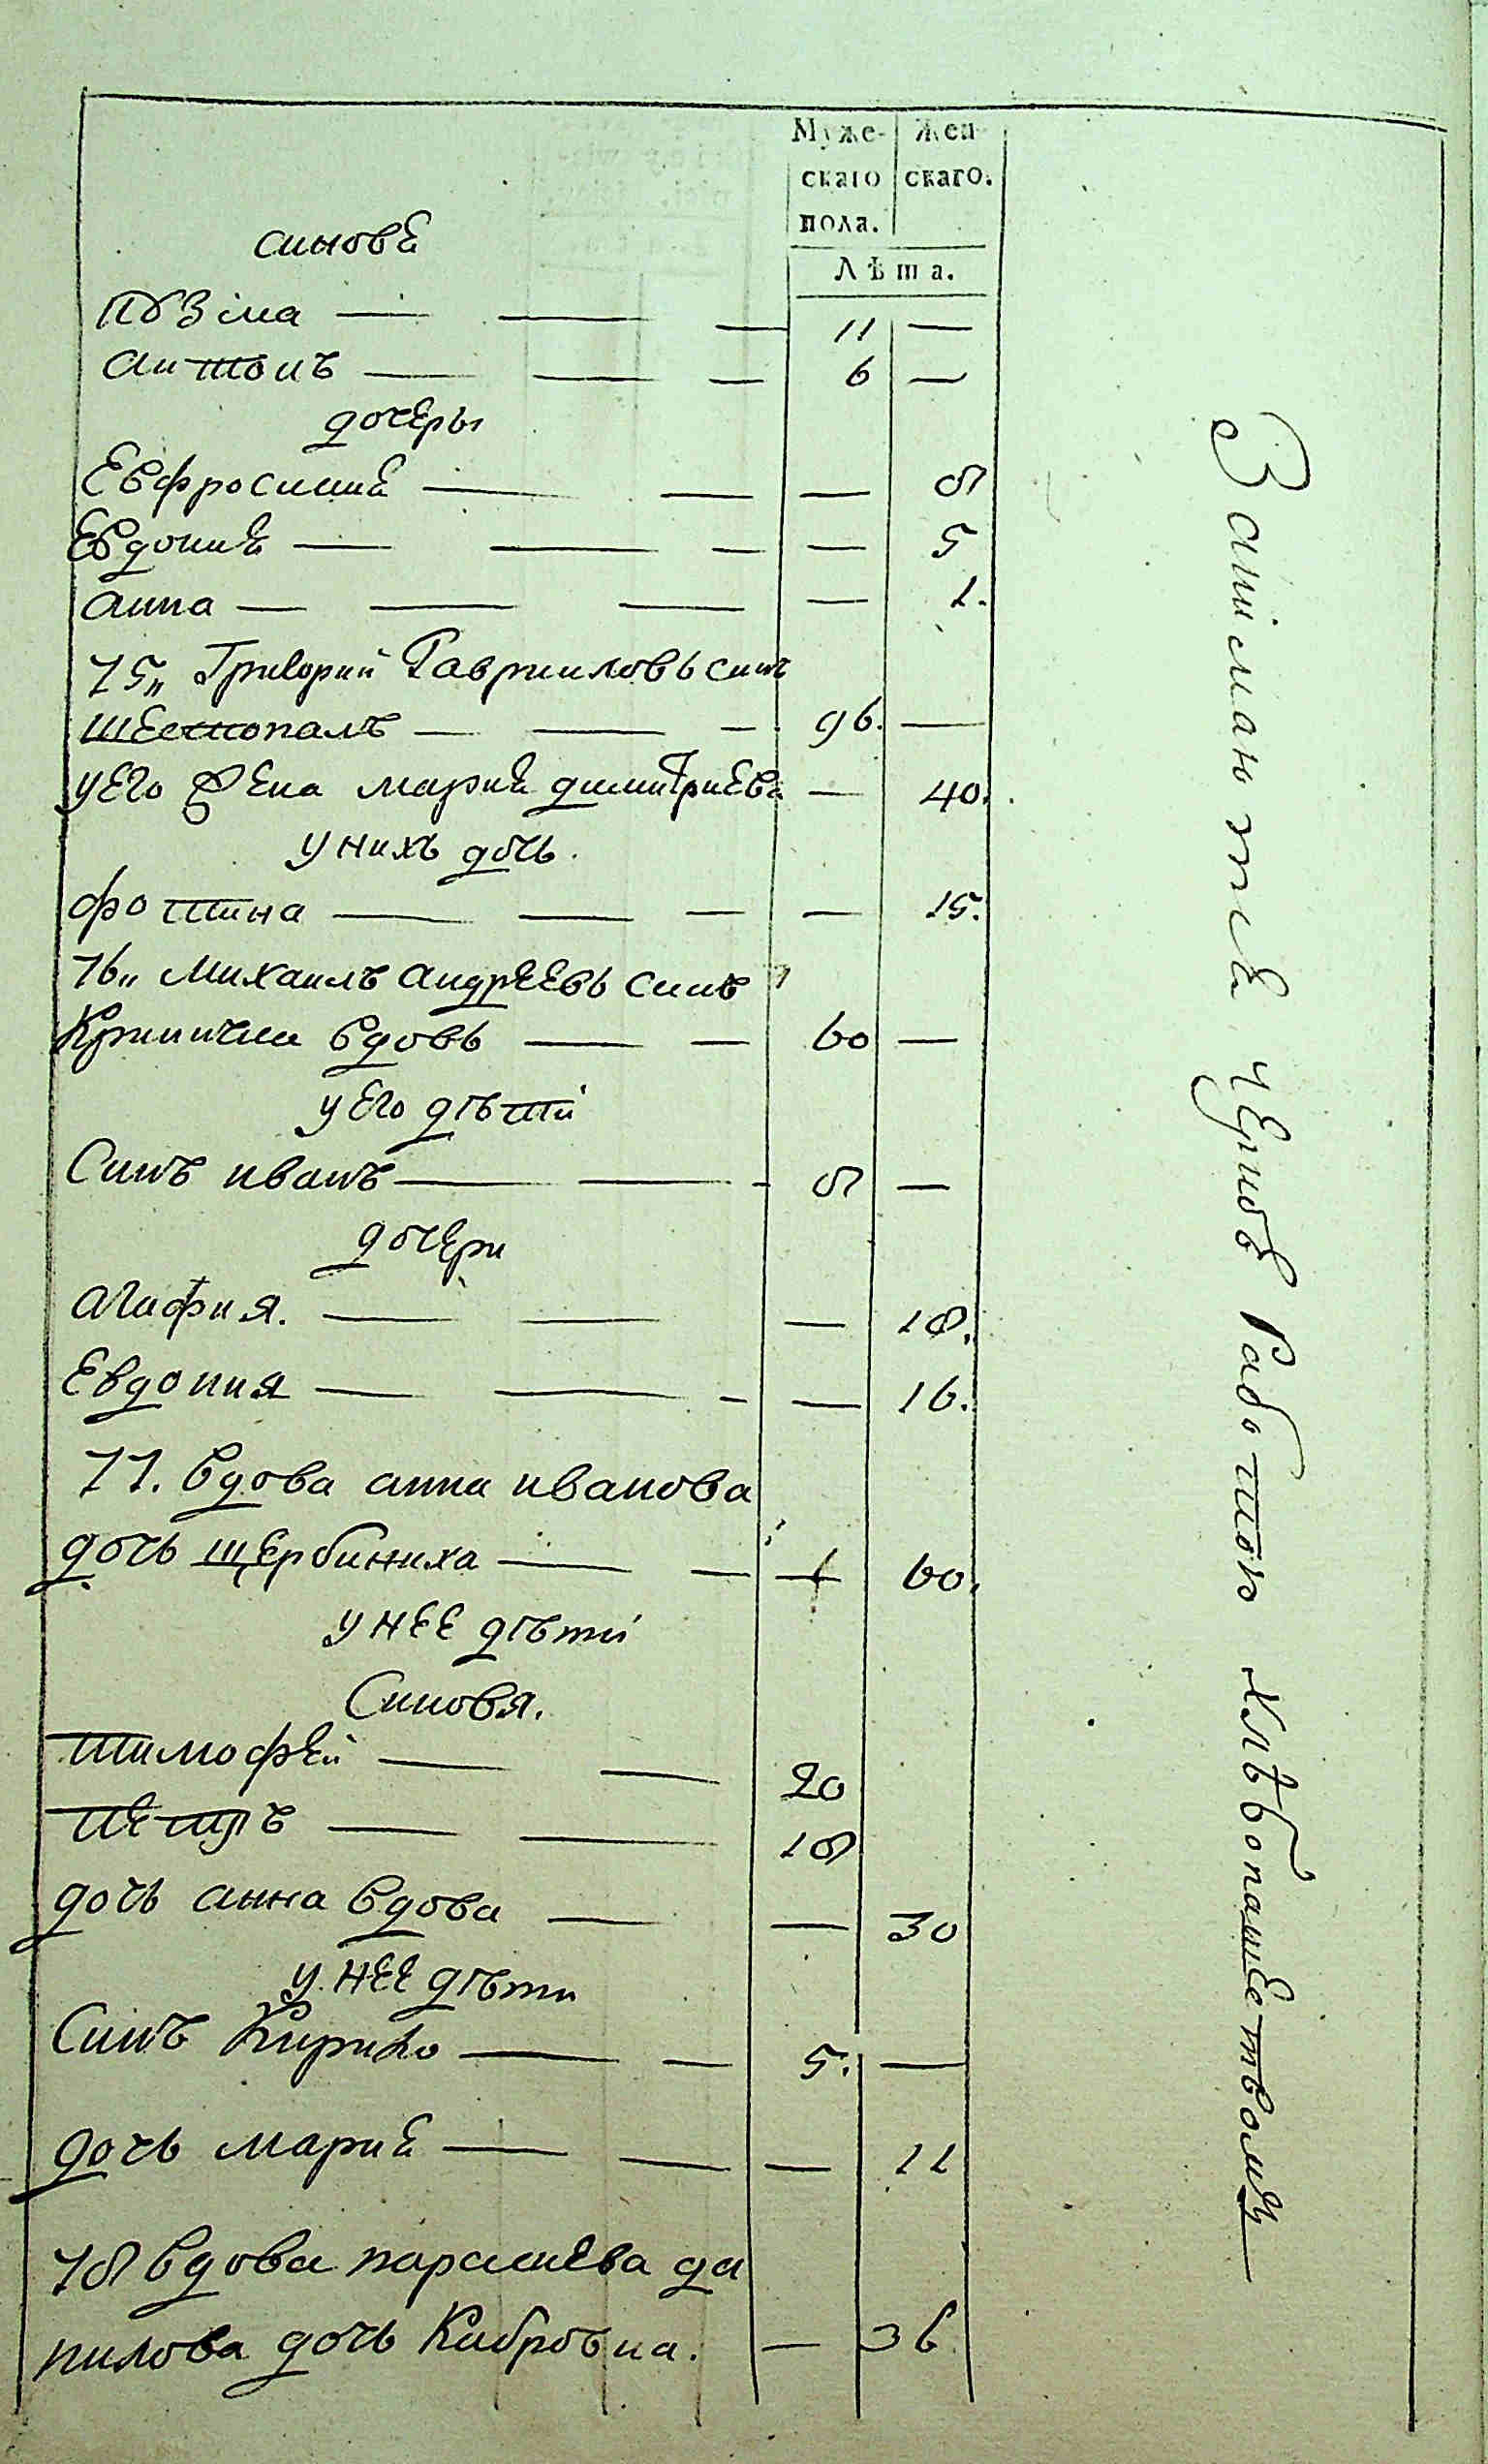 Муже- Жен-
скаго скаго.
пола.
Лѣта.
синовѣ
Кузіма — — — 11 —
Антонъ — — — 6 —
дочеры
Евфросиниѣ — — — 8
Евдокиѣ — — — — 5
анна — — — — 1.
75„ Григорий Гавриловъ синъ
шестопалъ — — — 96. —
у его жена мариѣ димитриева — 40.
у нихъ дочь.
фотина — — — — 15.
76„ михаилъ андрѣевъ синъ
вдовъ — — 60 —
у его дѣти
Синъ иванъ — — - 8 —
дочери
агафия. — — — 18.
Евдокия — — - — 16.
77. вдова анна иванова
дочь щербиниха — — — 60.
у нее дѣти
Синовя.
тимофей — — 20
петръ — — 18
дочь анна вдова — — 30
у нее дѣти
Синъ Кирило — — 5. —
дочь мариѣ — — — 11
78 вдова параскева да
нилова дочь Кибровна. — 36
Занімаютсѣ чернов работою хлѣбопашествомъ